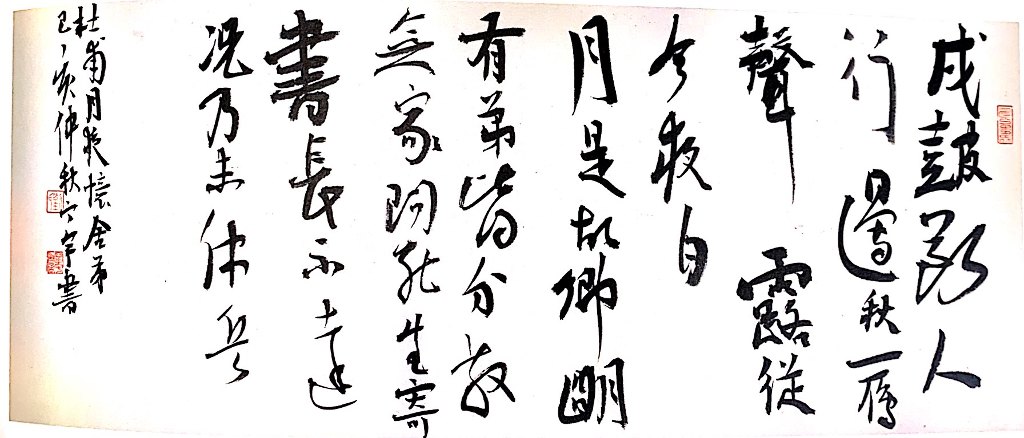 戍鼓斷人
行邊秋一雁
聲露從
今夜白
月是故鄉明
有弟皆分散
無家問死生寄
書長不達
況乃未休兵
杜甫月夜憶舍弟
己亥仲秋書